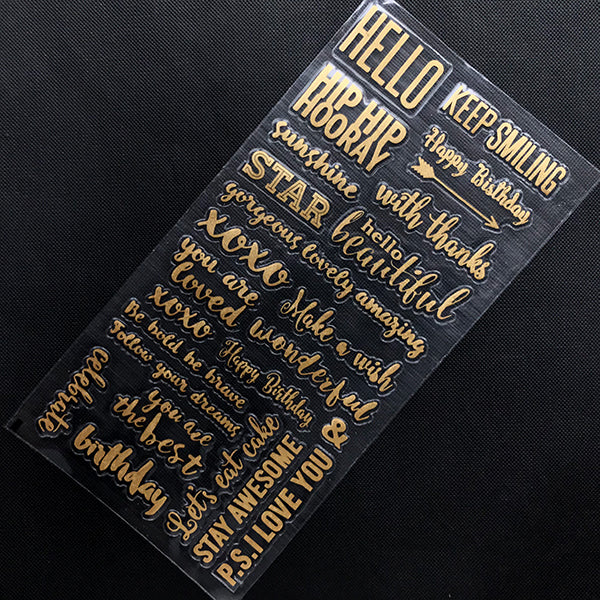 HELLO
KEEP SMILING
HIP HIP
HOORAY
Happy Birthday
sunshine
with thanks
STAR
hello
beautiful
gorgeous lovely amazing
xoxo
Make a wish
you are
loved wonderful
xoxo
Happy Birthday
&
Be bold be brave
Follow your dreams
celebrate
You are
the best
birthday
Let's eat cake
STAY AWESOME
P.S. I LOVE YOU